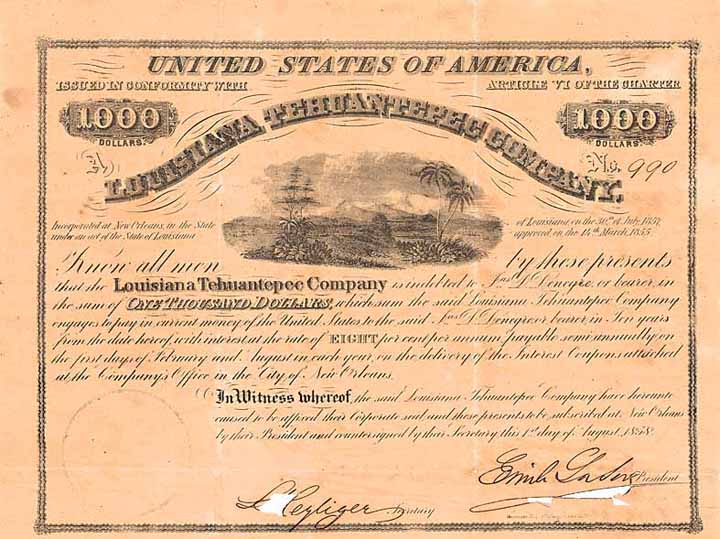 UNITED STATES OF AMERICA,
ISSUED IN CONFORMITY WITH ARTICLE VI OF THE CHARTER
1000 DOLLARS. 1000 DOLLARS.
LOUISIANA TEHUANTEPEC COMPANY.
No. 990
Incorporated at New Orleans, in the State of Louisiana, on the 30th of July 1857,
under an act of the State of Louisiana approved, on the 14th March, 1855.
Know all men by these presents
that the Louisiana Tehuantepec Company is indebted to Jas D Denegre, or bearer, in
the sum of ONE THOUSAND DOLLARS, which sum the said Louisiana Tehuantepec Company
engages to pay in current money of the United States to the said Jas D Denegre or bearer, in Ten years
from the date hereof, with interest at the rate of EIGHT per cent per annum, payable semi annually on
the first days of February and August in each year, on the delivery of the Interest Coupons attached
at the Company's Office in the City of New Orleans.
In Witness whereof, the said Louisiana Tehuantepec Company have hereunto
caused to be affixed their Corporate seal and these presents to be subscribed at New Orleans
by their President and countersigned by their Secretary this 1st day of August, 1858.
Emile La Sere President
Secretary